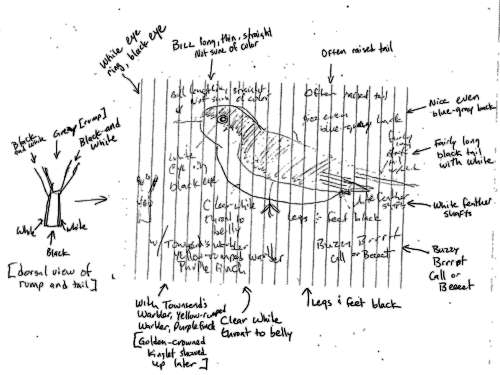 White eye
ring, black eye
BILL long, thin, straight
Not sure of color
Often raised tail
Bill long, thin, straight
Not sure of color
Often raised tail
Nice even
blue-gray back
Nice even
blue-gray back
Black
and white
Gray [rump]
Black and
white
Fairly long
black tail
with white
Fairly long
black tail
with white
White
eye ring
black eye
White
White
Black
[dorsal view of
rump and tail]
Clear white
throat to
belly
Legs & feet black
White feather
shafts
White feather
shafts
w/ Townsend's warbler
Yellow-rumped warbler
Purple Finch
Buzzy Brrrpt
Call or Beeeet
Buzzy
Brrrpt
Call or
Beeeet
With Townsend's
Warbler, Yellow-rumped
Warbler, Purple Finch
[Golden-crowned
Kinglet showed
up later]
Clear White
throat to belly
Legs & feet black